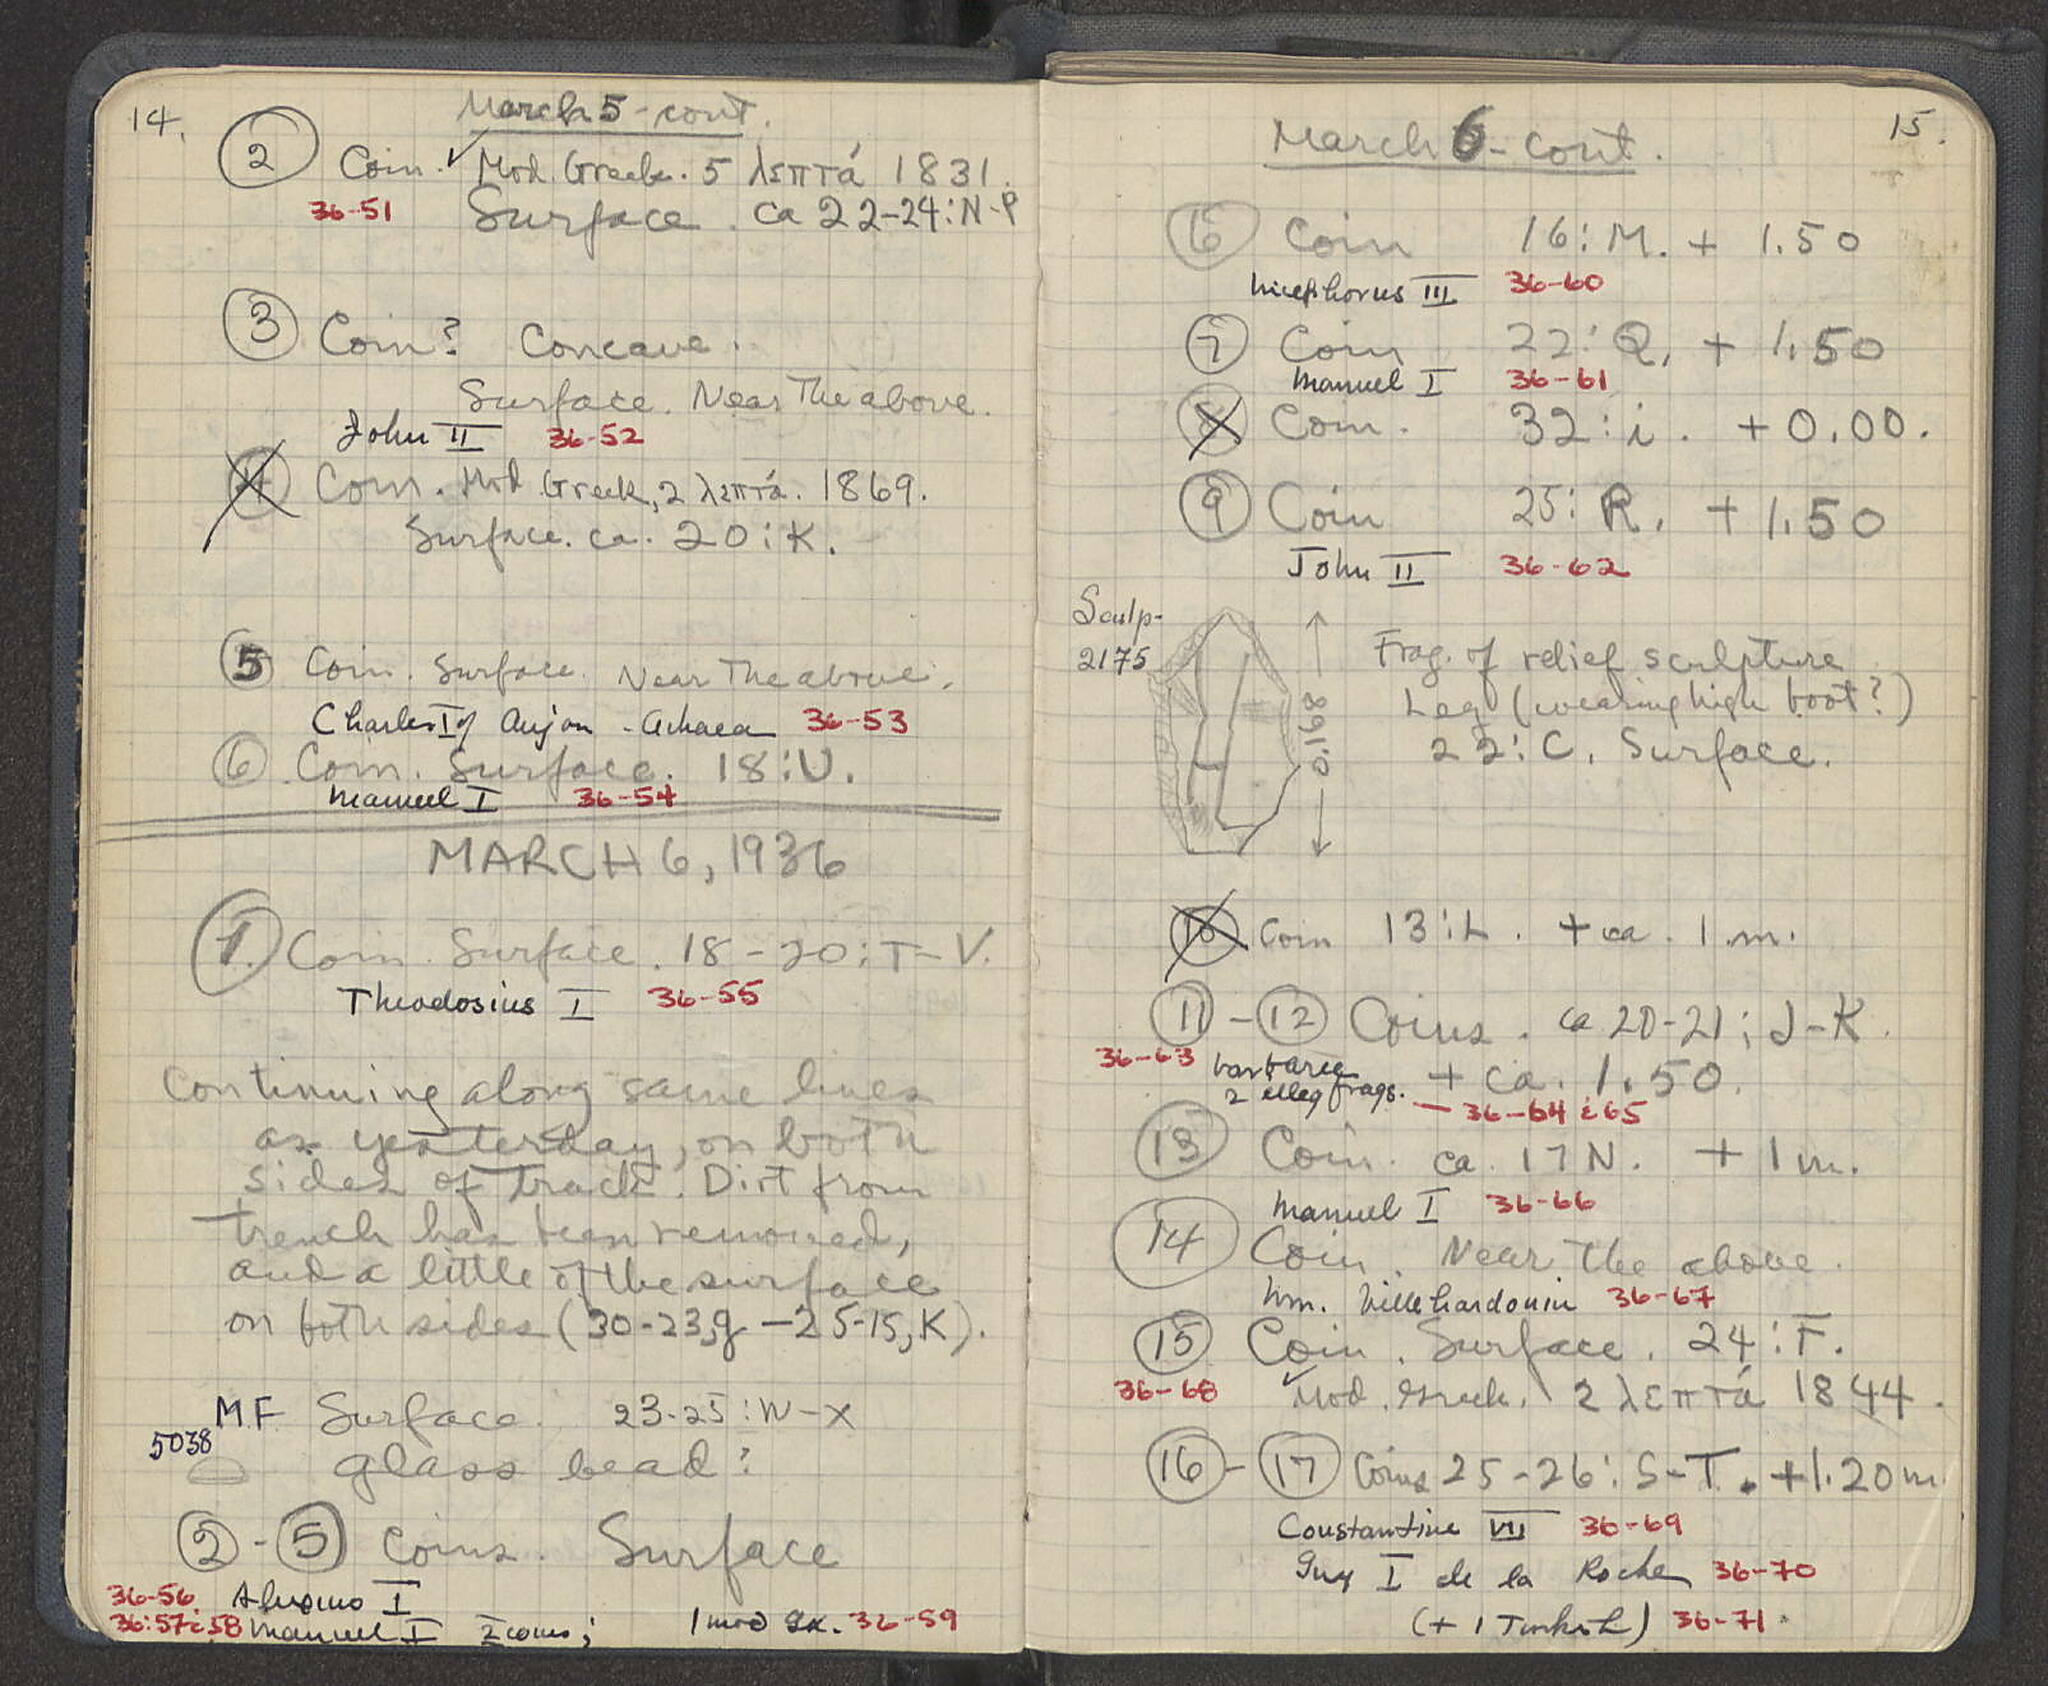 14.
March 5 - cont.
2 Coin. ✓ Mod. Greek. 5 λεπτά 1831.
36-51 Surface. ca 22-24:N-P
3 Coin? Concave.
Surface. Near The above.
John II 36-52
4 Coin. Mod Greek, 2 λεπτά. 1869.
Surface. ca. 20:K.
5 Coin. Surface. Near The above.
Charles I of Anjou - Achaea 36-53
6 Coin. Surface. 18:U.
Manuel I 36-54
MARCH 6, 1936
1. Coin. Surface. 18-20:T-V.
Theodosius I 36-55
Continuing along same lines
as yesterday, on both
sides of track. Dirt from
trench has been removed,
and a little of the surface
on both sides (30-23,g - 25-15,K).
MF Surface. 23-25:W-X
5038
glass bead?
2-5 Coins. Surface
36-56 Alexius I
36:57 & 58 Manuel I 2 coins; 1 mod Gk. 36-59
15.
March 6 - cont.
6 Coin 16:M. + 1.50
Nicephorus III 36-60
7 Coin 22:Q. + 1.50
Manuel I 36-61
8 Coin. 32:i. +0.00.
9 Coin 25:R. +1.50
John II 36-62
Sculp-
2175
0.168
Frag. of relief sculpture
Leg (wearing high boot?)
22:C. Surface.
10 Coin 13:L. + ca. 1 m.
11-12 Coins. ca 20-21:J-K.
36-63 barbaric + ca. 1.50.
2 illeg frags. — 36-64 & 65
13 Coin. ca. 17 N. + 1 m.
Manuel I 36-66
14 Coin. Near The above.
Wm. Villehardouin 36-67
15 Coin. Surface. 24:F.
36-68 ✓ Mod. Greek. 2 λεπτά 1844.
16-17 Coins 25-26:S-T. +1.20 m
Constantine VII 36-69
Guy I de la Roche 36-70
(+ 1 Turkish) 36-71.